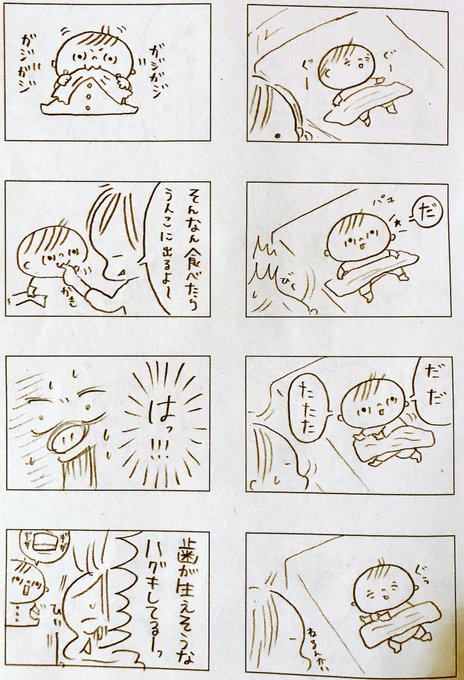 ぐー
ぐー
だ
パチ
びく
だ
だ
たたた
ぐう
ねるんかい
ガジガジ
ガジガジ
そんなん食べたら
うんこに出るよ〜
はっ!!!
歯が生えそうな
ハグキしてるーっ